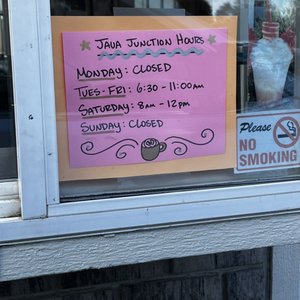 JAVA JUNCTION HOURS
MONDAY: CLOSED
TUES-FRI: 6:30-11:00am
SATURDAY: 8am-12pm
SUNDAY: CLOSED
Please
NO
SMOKING